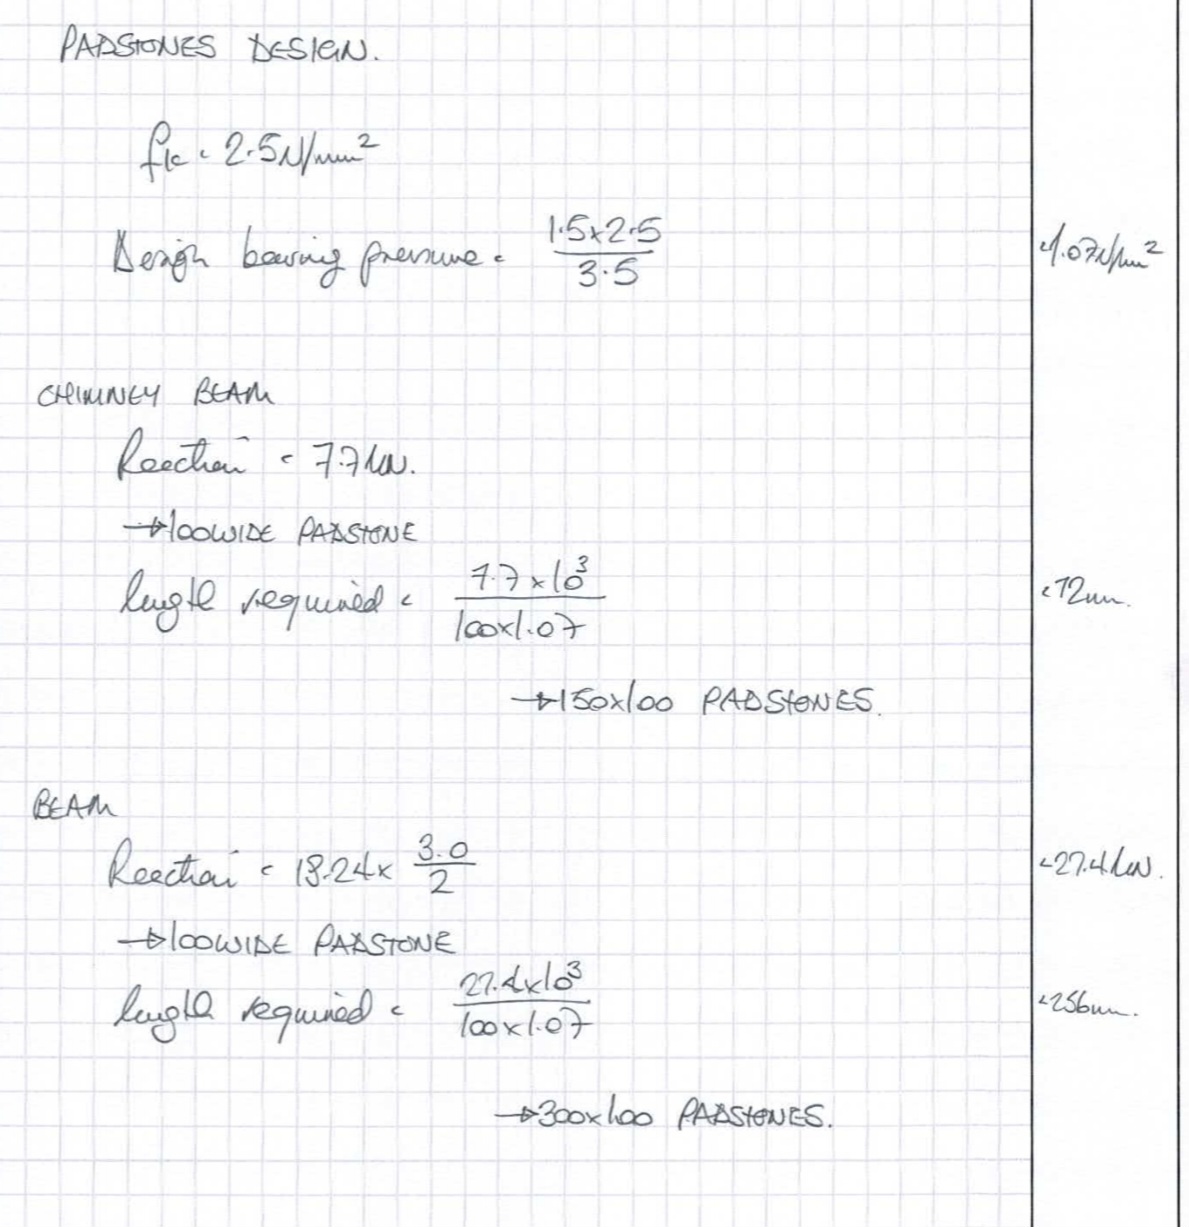 PADSTONES DESIGN.
fk = 2.5N/mm²
Design bearing pressure = 1.5x2.5 / 3.5 =1.07N/mm²
CHIMNEY BEAM
Reaction = 7.7kN.
→100WIDE PADSTONE
length required = 7.7 x 10³ / 100x1.07 =72mm.
→150x100 PADSTONES.
BEAM
Reaction = 18.24x 3.0 / 2 =27.4kN.
→100WIDE PADSTONE
length required = 27.4x10³ / 100x1.07 =256mm.
→300x100 PADSTONES.